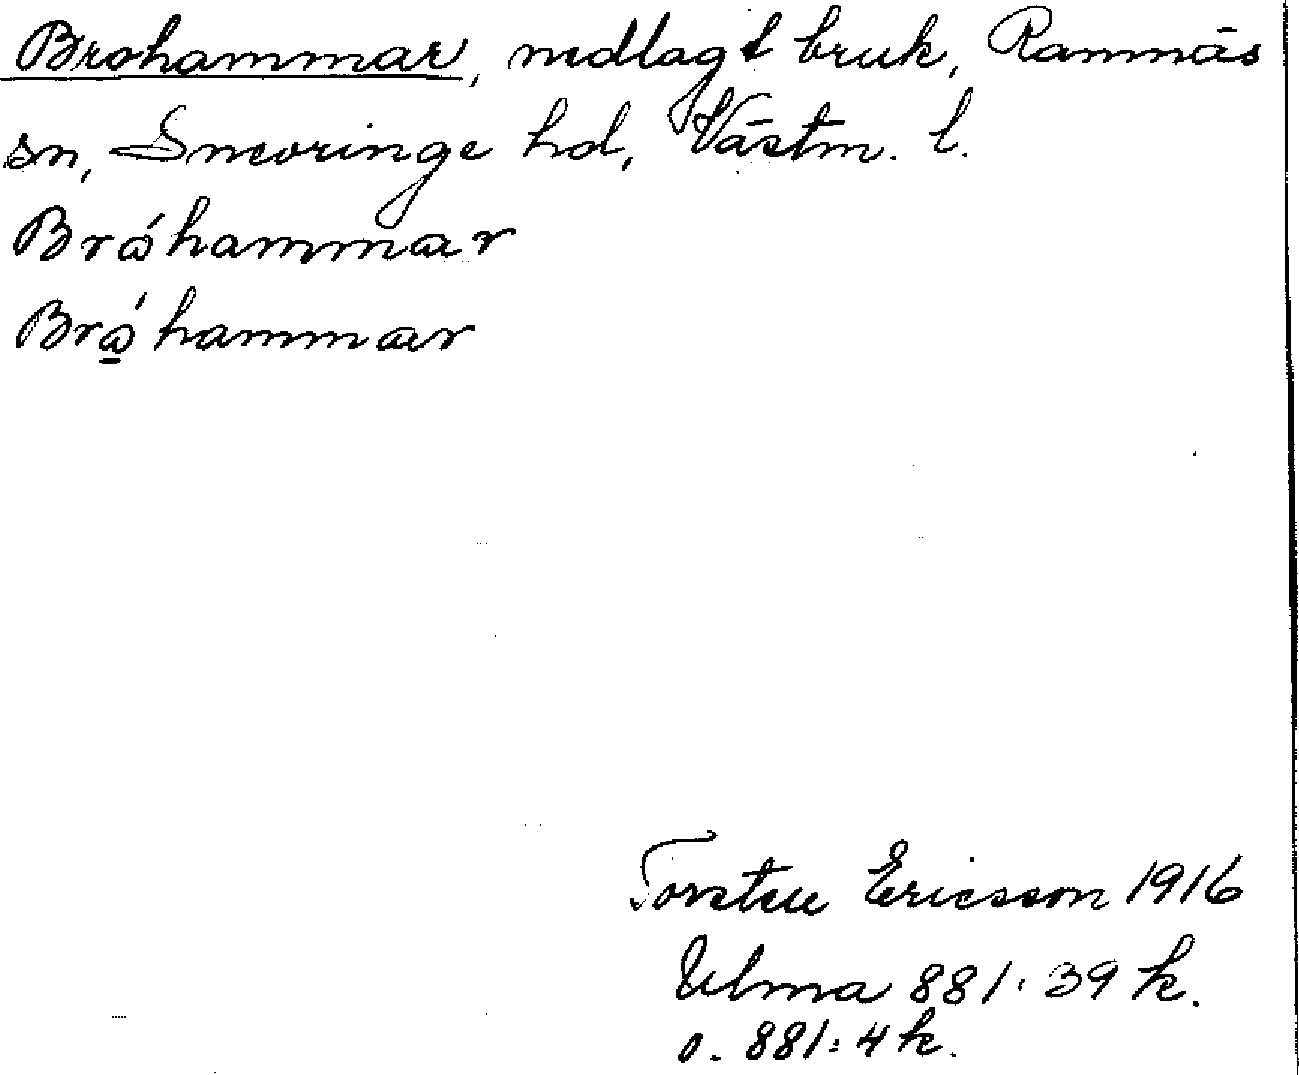 Brohammar, nedlagt bruk, Ramnäs
sn, Snevringe hd, Västm. l.
Bró hammar
Brọ́ hammar
Torsten Ericsson 1916
Ulma 881:39 k.
o. 881:4 k.